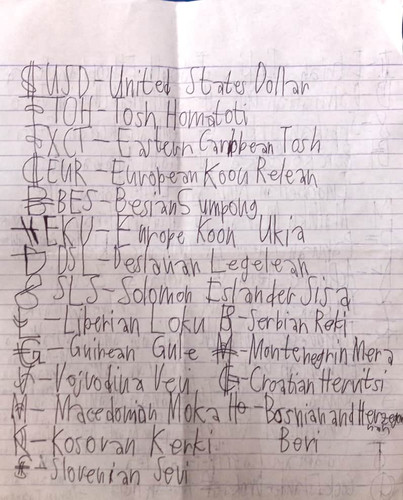 $ USD - United States Dollar
TOH - Tosh Homototi
XCT - Eastern Caribbean Tosh
EUR - European Koou Relean
BES - Besian Sumpong
EKU - Europe Koon Ukia
DSL - Deslauan Legelean
SLS - Solomon Eslander Sisa
- Liberian Loku B - Serbian Reki
G - Guinean Gule M - Montenegrin Mera
V - Vojvodina Vevi G - Croatian Hervtsi
M - Macedonian Moka Ho - Bosnian and Herzegovinian
K - Kosovan Kenki Beri
$ - Slovenian Sevi